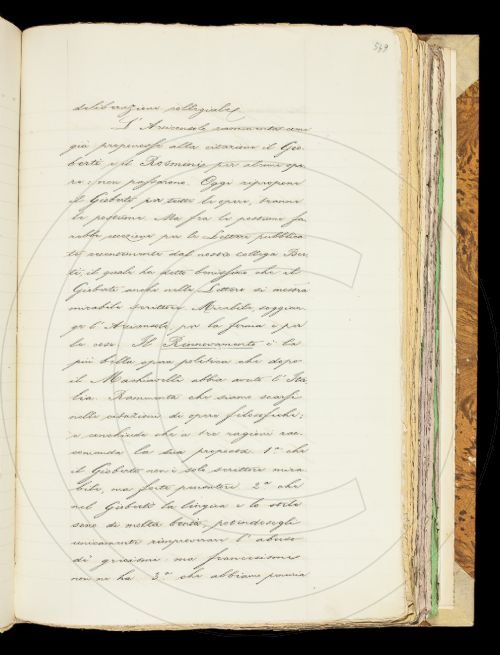 549
deliberazione collegiale.
L'Arciconsolo rammenta come
già proponesse alla citazione il Gio-
berti e il Rosmini per alcune ope-
re; non passarono. Oggi ripropone
il Gioberti per tutte le opere, tranne
le postume. Ma fra le postume fa-
rebbe eccezione per le Lettere pubblica-
te recentemente dal nostro collega Ber-
ti, il quale ha detto benissimo che il
Gioberti anche nelle Lettere si mostra
mirabile scrittore. Mirabile, soggiun-
ge l'Arciconsolo, per la forma e per
le cose. Il Rinnovamento è la
più bella opera politica che dopo
il Machiavelli abbia avuto l'Ita-
lia. Rammenta che siamo scarsi
nelle citazioni di opere filosofiche;
e conchiude che a tre ragioni rac-
comanda la sua proposta: 1.º che
il Gioberti non è solo scrittore mira-
bile, ma forte pensatore 2.º che
nel Gioberti la lingua e lo stile
sono di molta bontà, potendosegli
unicamente rimproverare l'abuso
di grecismi, ma francesismi
non ne ha 3.º che abbiamo penuria